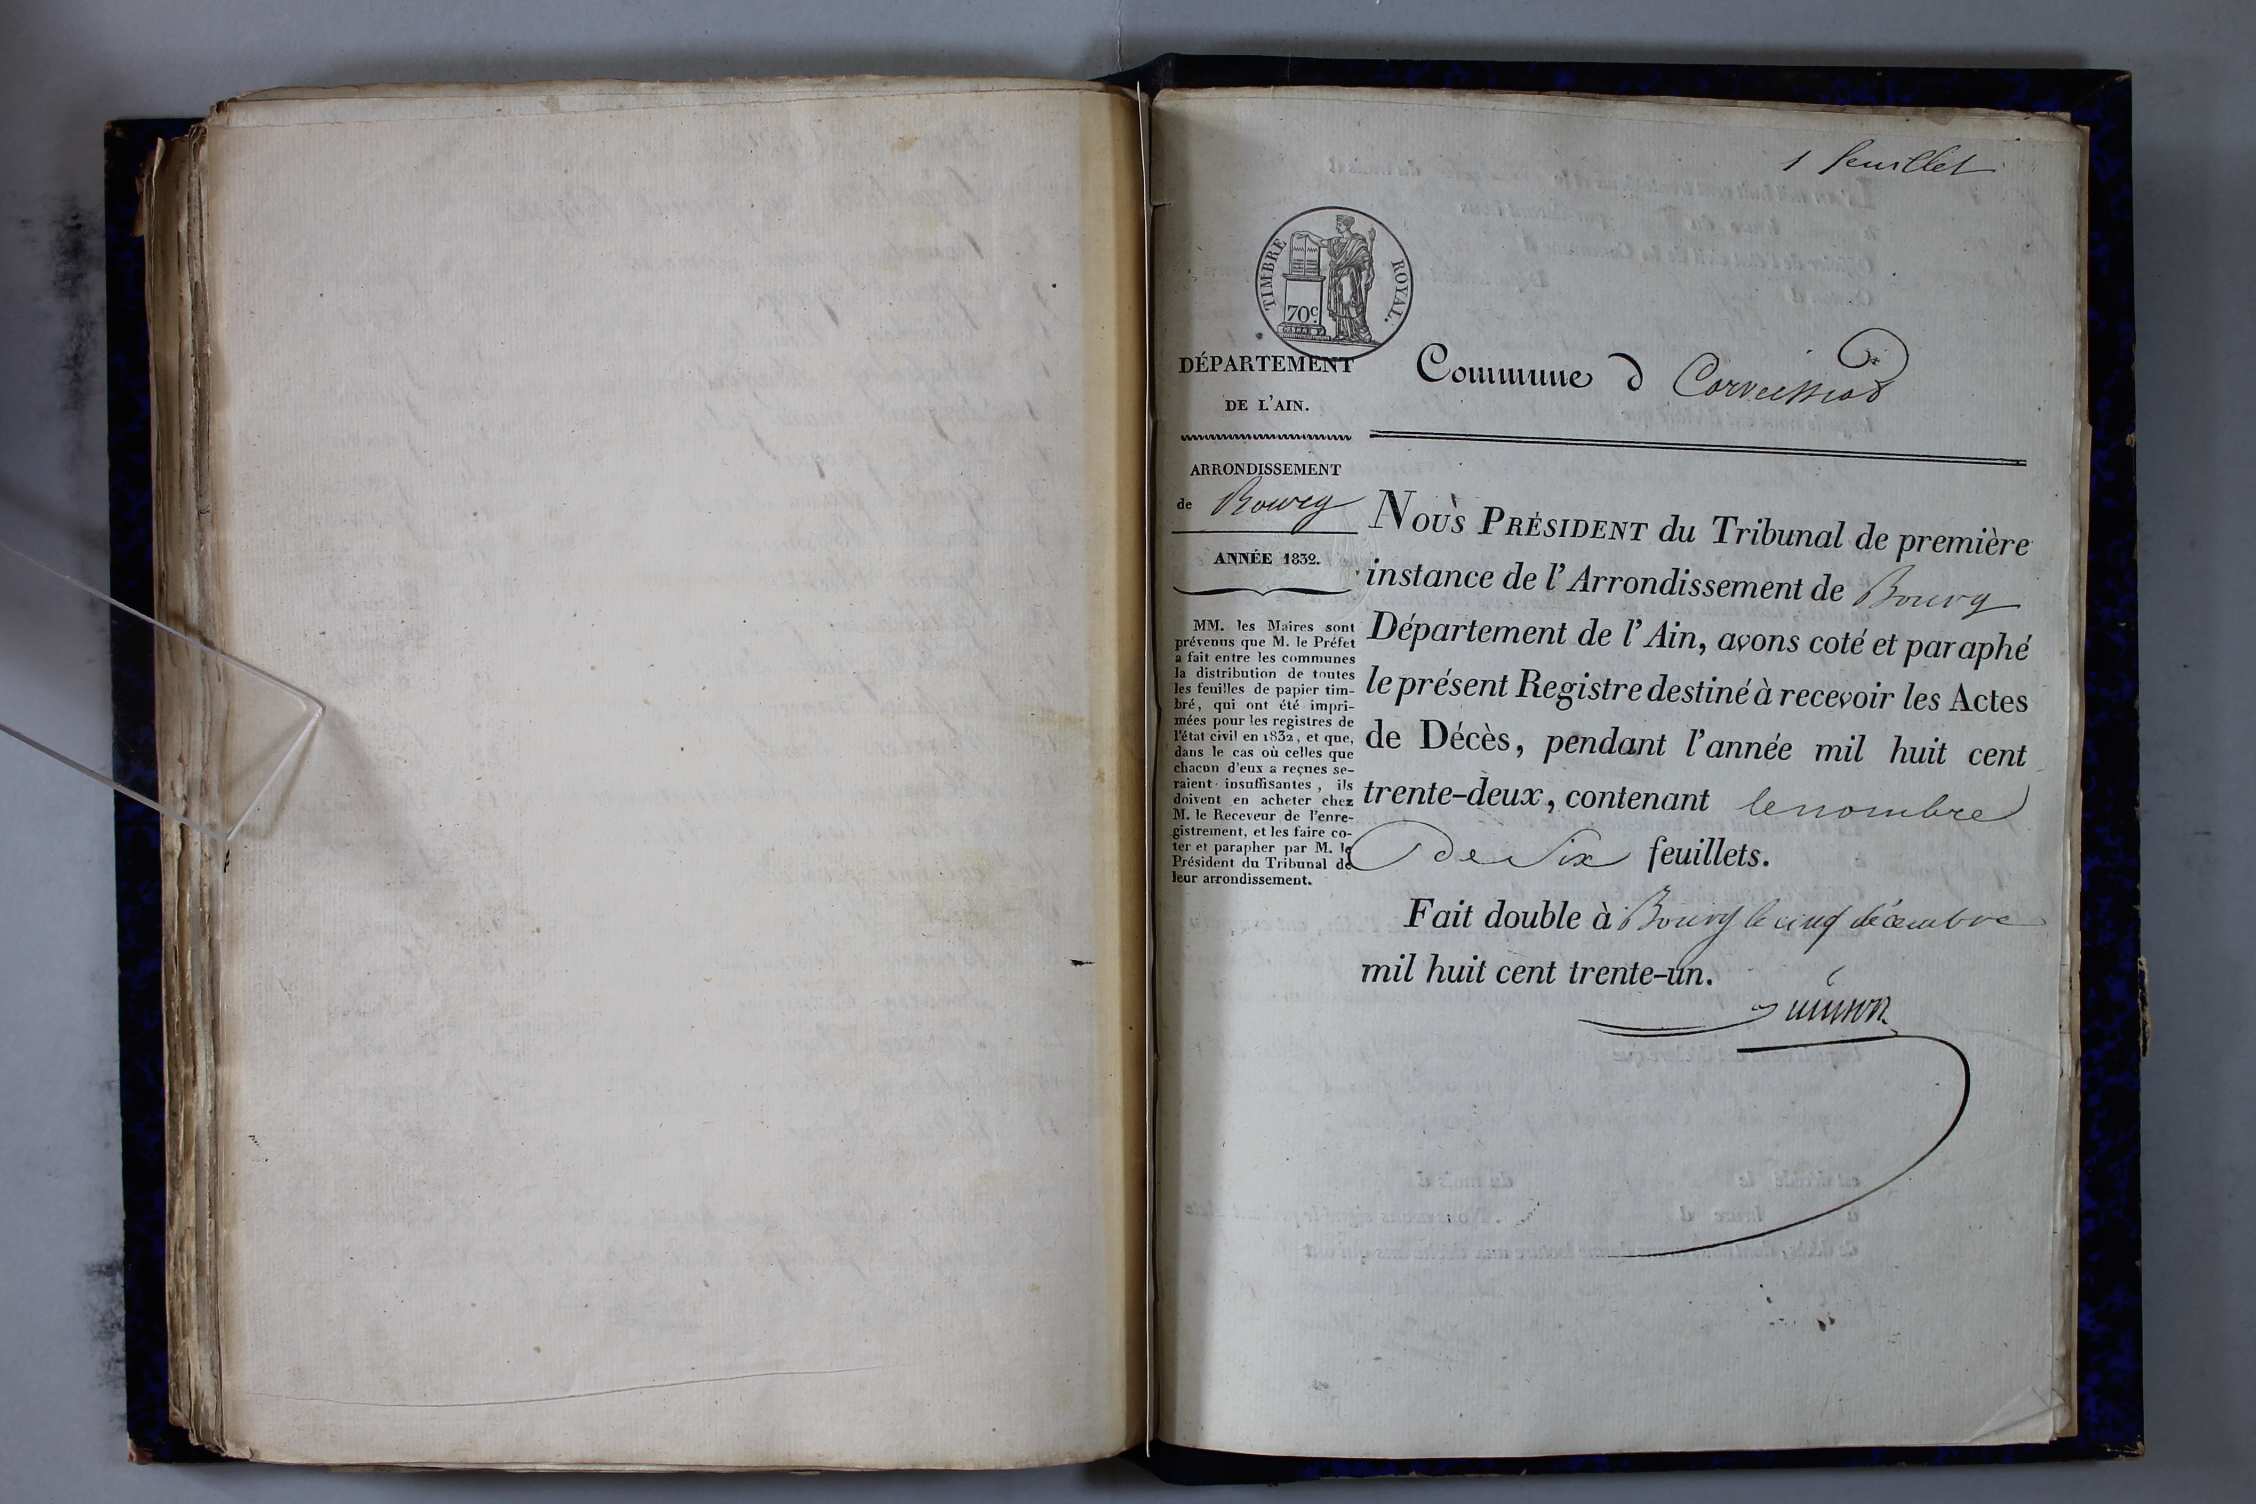 1 feuillet
TIMBRE ROYAL.
70c
DÉPARTEMENT
DE L'AIN.
Commune d Corveissiad
ARRONDISSEMENT
de Bourg
ANNÉE 1832.
MM. les Maires sont
prévenus que M. le Préfet
a fait entre les communes
la distribution de toutes
les feuilles de papier tim-
bré, qui ont été impri-
mées pour les registres de
l'état civil en 1832, et que,
dans le cas où celles que
chacun d'eux a reçues se-
raient insuffisantes, ils
doivent en acheter chez
M. le Receveur de l'enre-
gistrement, et les faire co-
ter et parapher par M. le
Président du Tribunal de
leur arrondissement.
NOUS PRÉSIDENT du Tribunal de première
instance de l'Arrondissement de Bourg
Département de l'Ain, avons coté et paraphé
le présent Registre destiné à recevoir les Actes
de Décès, pendant l'année mil huit cent
trente-deux, contenant le nombre
de Six feuillets.
Fait double à Bourg le cinq décembre
mil huit cent trente-un.